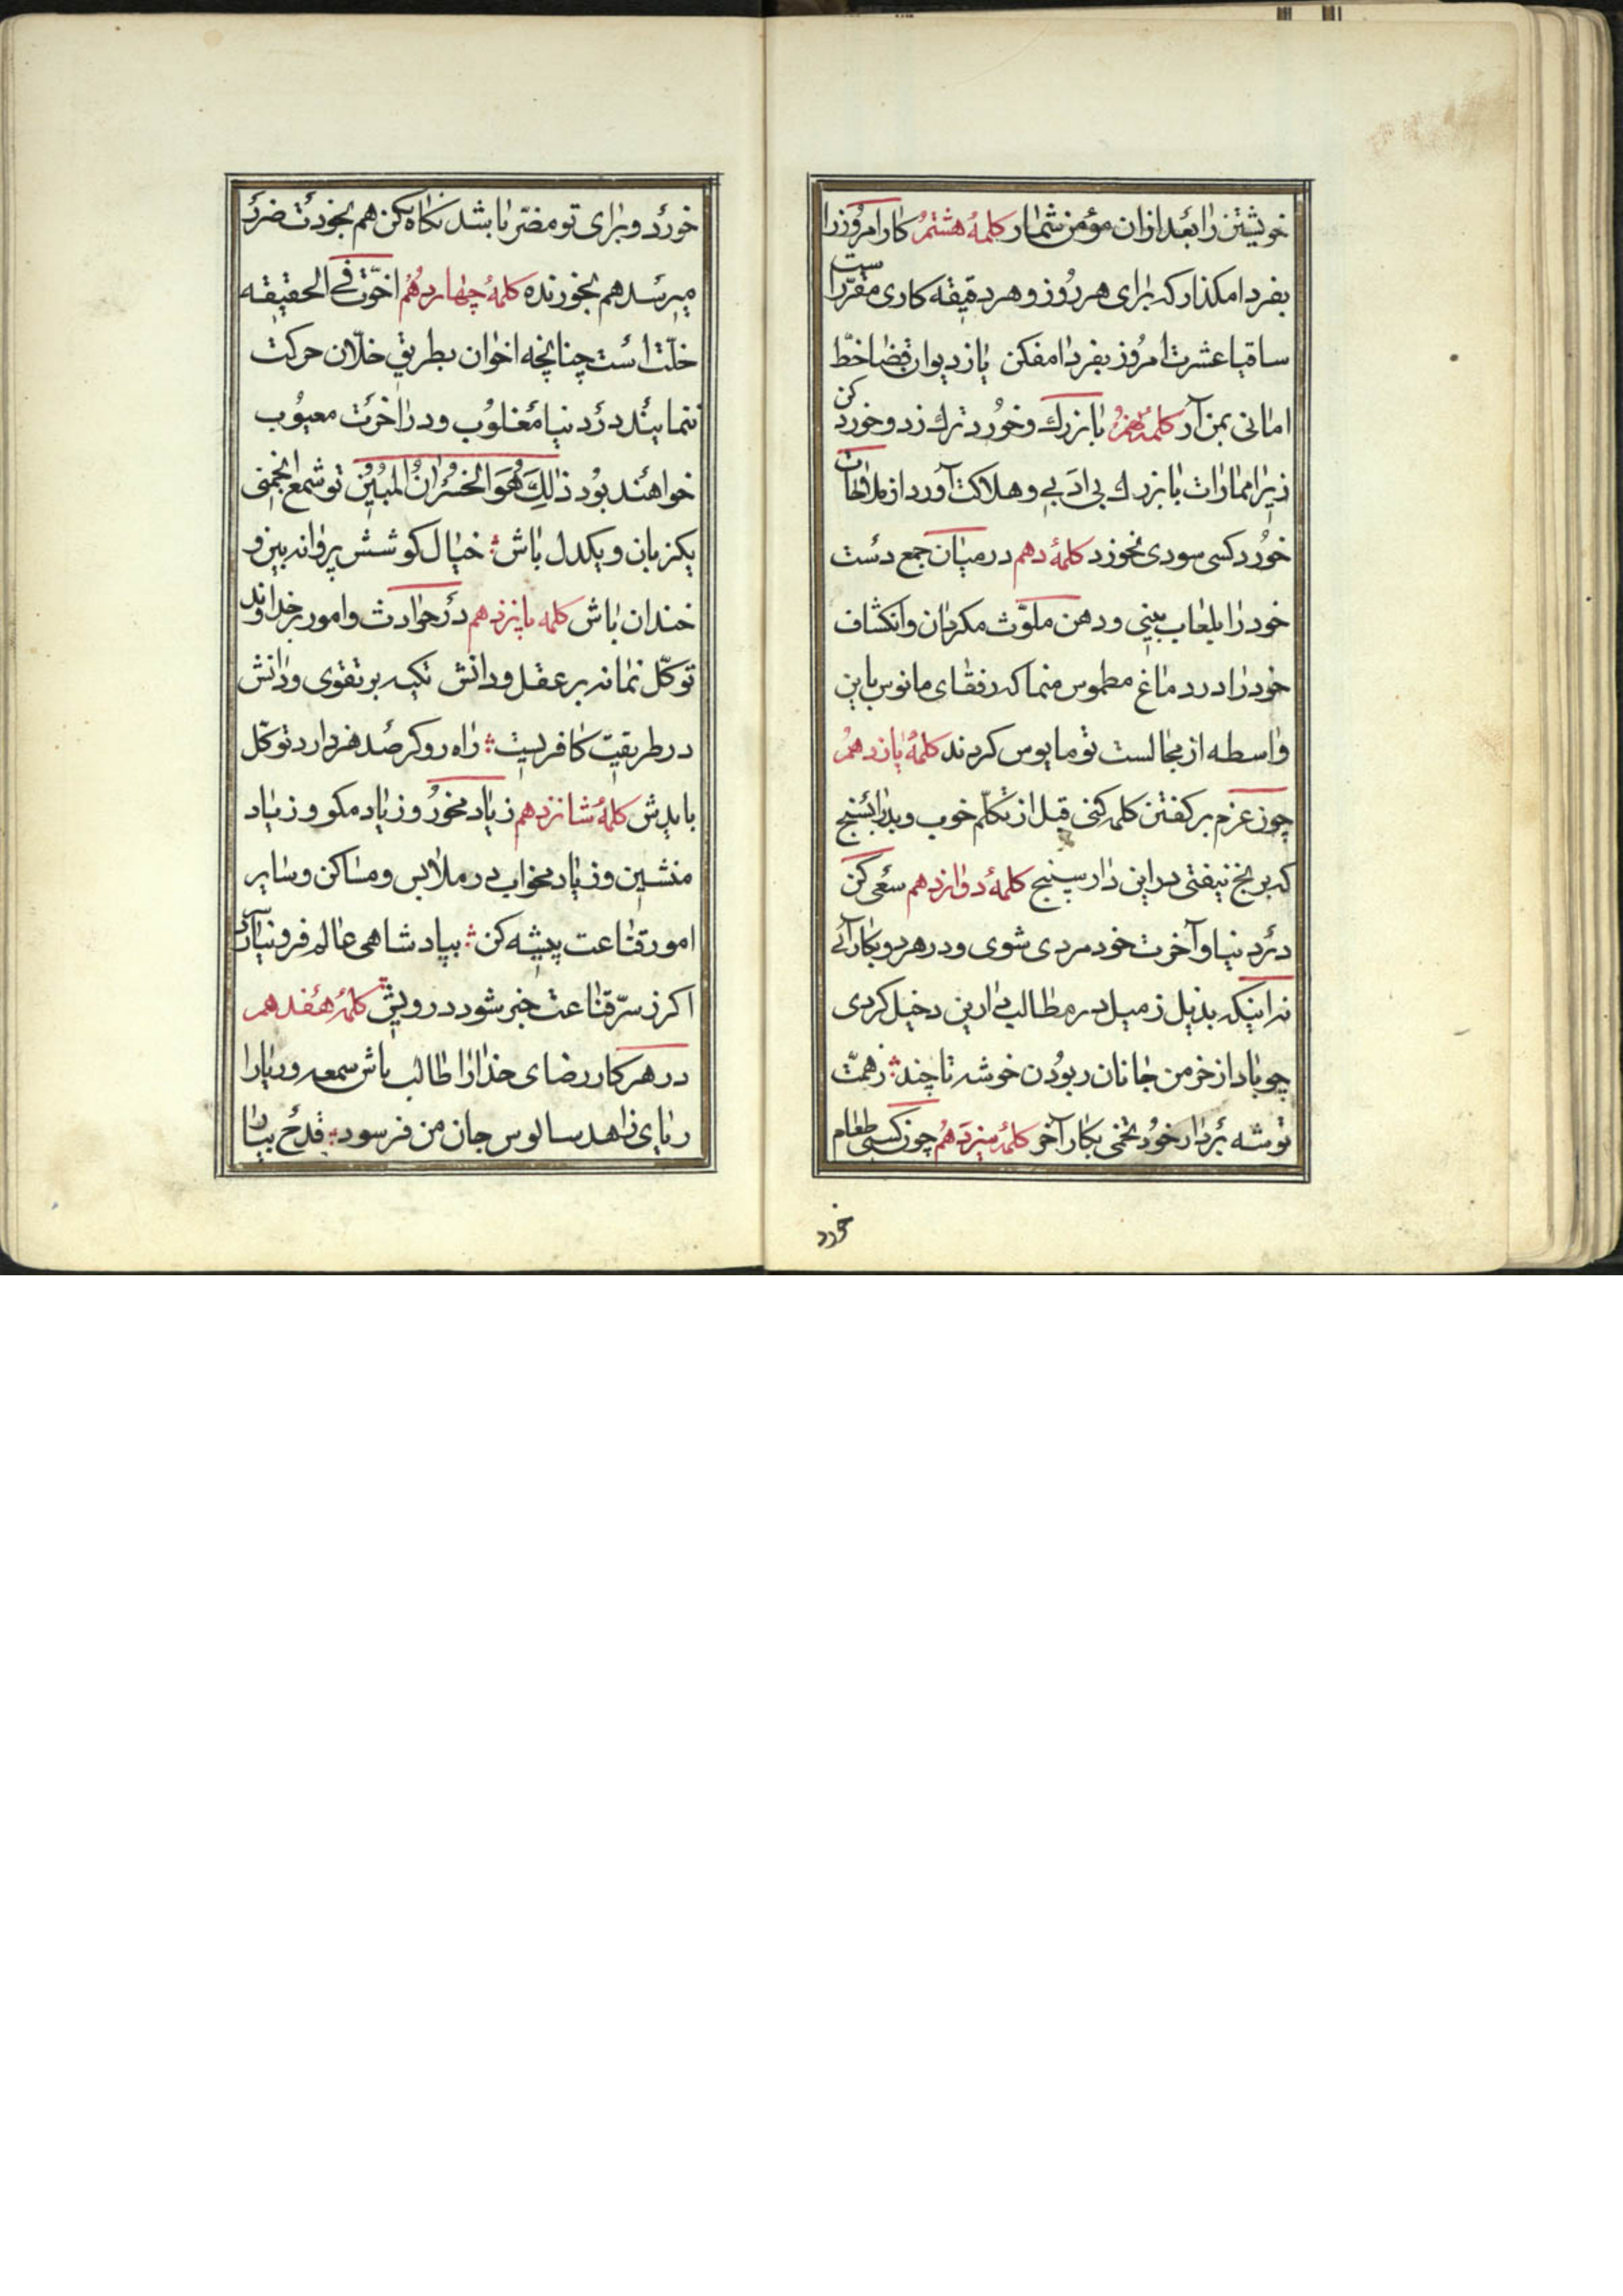 خویشتن را بعد ازان مؤمن شمار کلمهٔ هشتم کار امروز را
بفردا مکذار که برای هر روز و هر دقیقه کاری مقرّر است
ساقیا عشرت امروز بفردا مفکن یا ز دیوان قضا خطّ
امانی بمن آر کلمهٔ نهم با بزرک و خورد ترک نرد و خورد کن
زیرا مماراث با بزرك بی ادبی و هلاکت آورد از ملاقات
خورد کسی سودی نخورد کلمهٔ دهم در میان جمع دست
خود را بلعاب بینی و دهن ملوّث مکردان و انکشاف
خود را در دماغ مطموس منما که رفقای مانوس باین
واسطه از مجالست تو مایوس کردند کلمهٔ یازدهم
چون عزم بر کفتن کلمه کنی قبل از تکلّم خوب و بد را بسنج
که برنج نیفتی در این دار سپنج کلمهٔ دوازدهم سعی کن
در دنیا و آخرت خود مردی شوی و در هر دو بکار آئی
نه اینکه بذیل زمیل در مطالب دارین دخیل کردی
چو باد از خرمن جانان ربودن خوشه تا چند ز همّت
توشه بردار خود تخمی بکار آخر کلمهٔ سیزدهم چون کسی طعام
خورد
خورد و برای تو مضرّ باشد نکاه نکن هم بخودت ضرر
میرسد هم بخورنده کلمهٔ چهاردهم اخوّت فی الحقیقه
خلّت است چنانچه اخوان بطریق خلّان حرکت
ننمایند در دنیا مغلوب و در اخرت معیوب
خواهند بود ذالِكَ هُوَ الخُسْرانُ المُبینُ تو شمع انجمنی
یکزبان و یکدل باش خیال کوشش پروانه بین و
خندان باش کلمه پانزدهم در حوادث و امور بر خداوند
توکّل نما نه بر عقل و دانش تکیه بر تقوی و دانش
در طریقت کافریست راه رو کر صد هنر دارد توکّل
بایدش کلمهٔ شانزدهم زیاد مخور و زیاد مکو و زیاد
منشین و زیاد مخواب در ملابس و مساکن و سایر
امور قناعت پیشه کن بپادشاهی عالم فرو نیارد سر
اکر ز سرّ قناعت خبر شود درویش کلمهٔ هفدهم
در هر کار رضای خدا را طالب باش سمعه و ریا را
ریای زاهد سالوس جان من فرسود قدح بیار